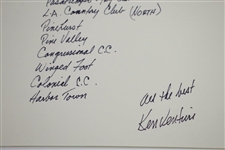 L.A. Country Club (North)
Pinehurst
Pine Valley
Congressional C.C.
Winged Foot
Colonial C.C.
Harbor Town
All the best
Ken Venturi